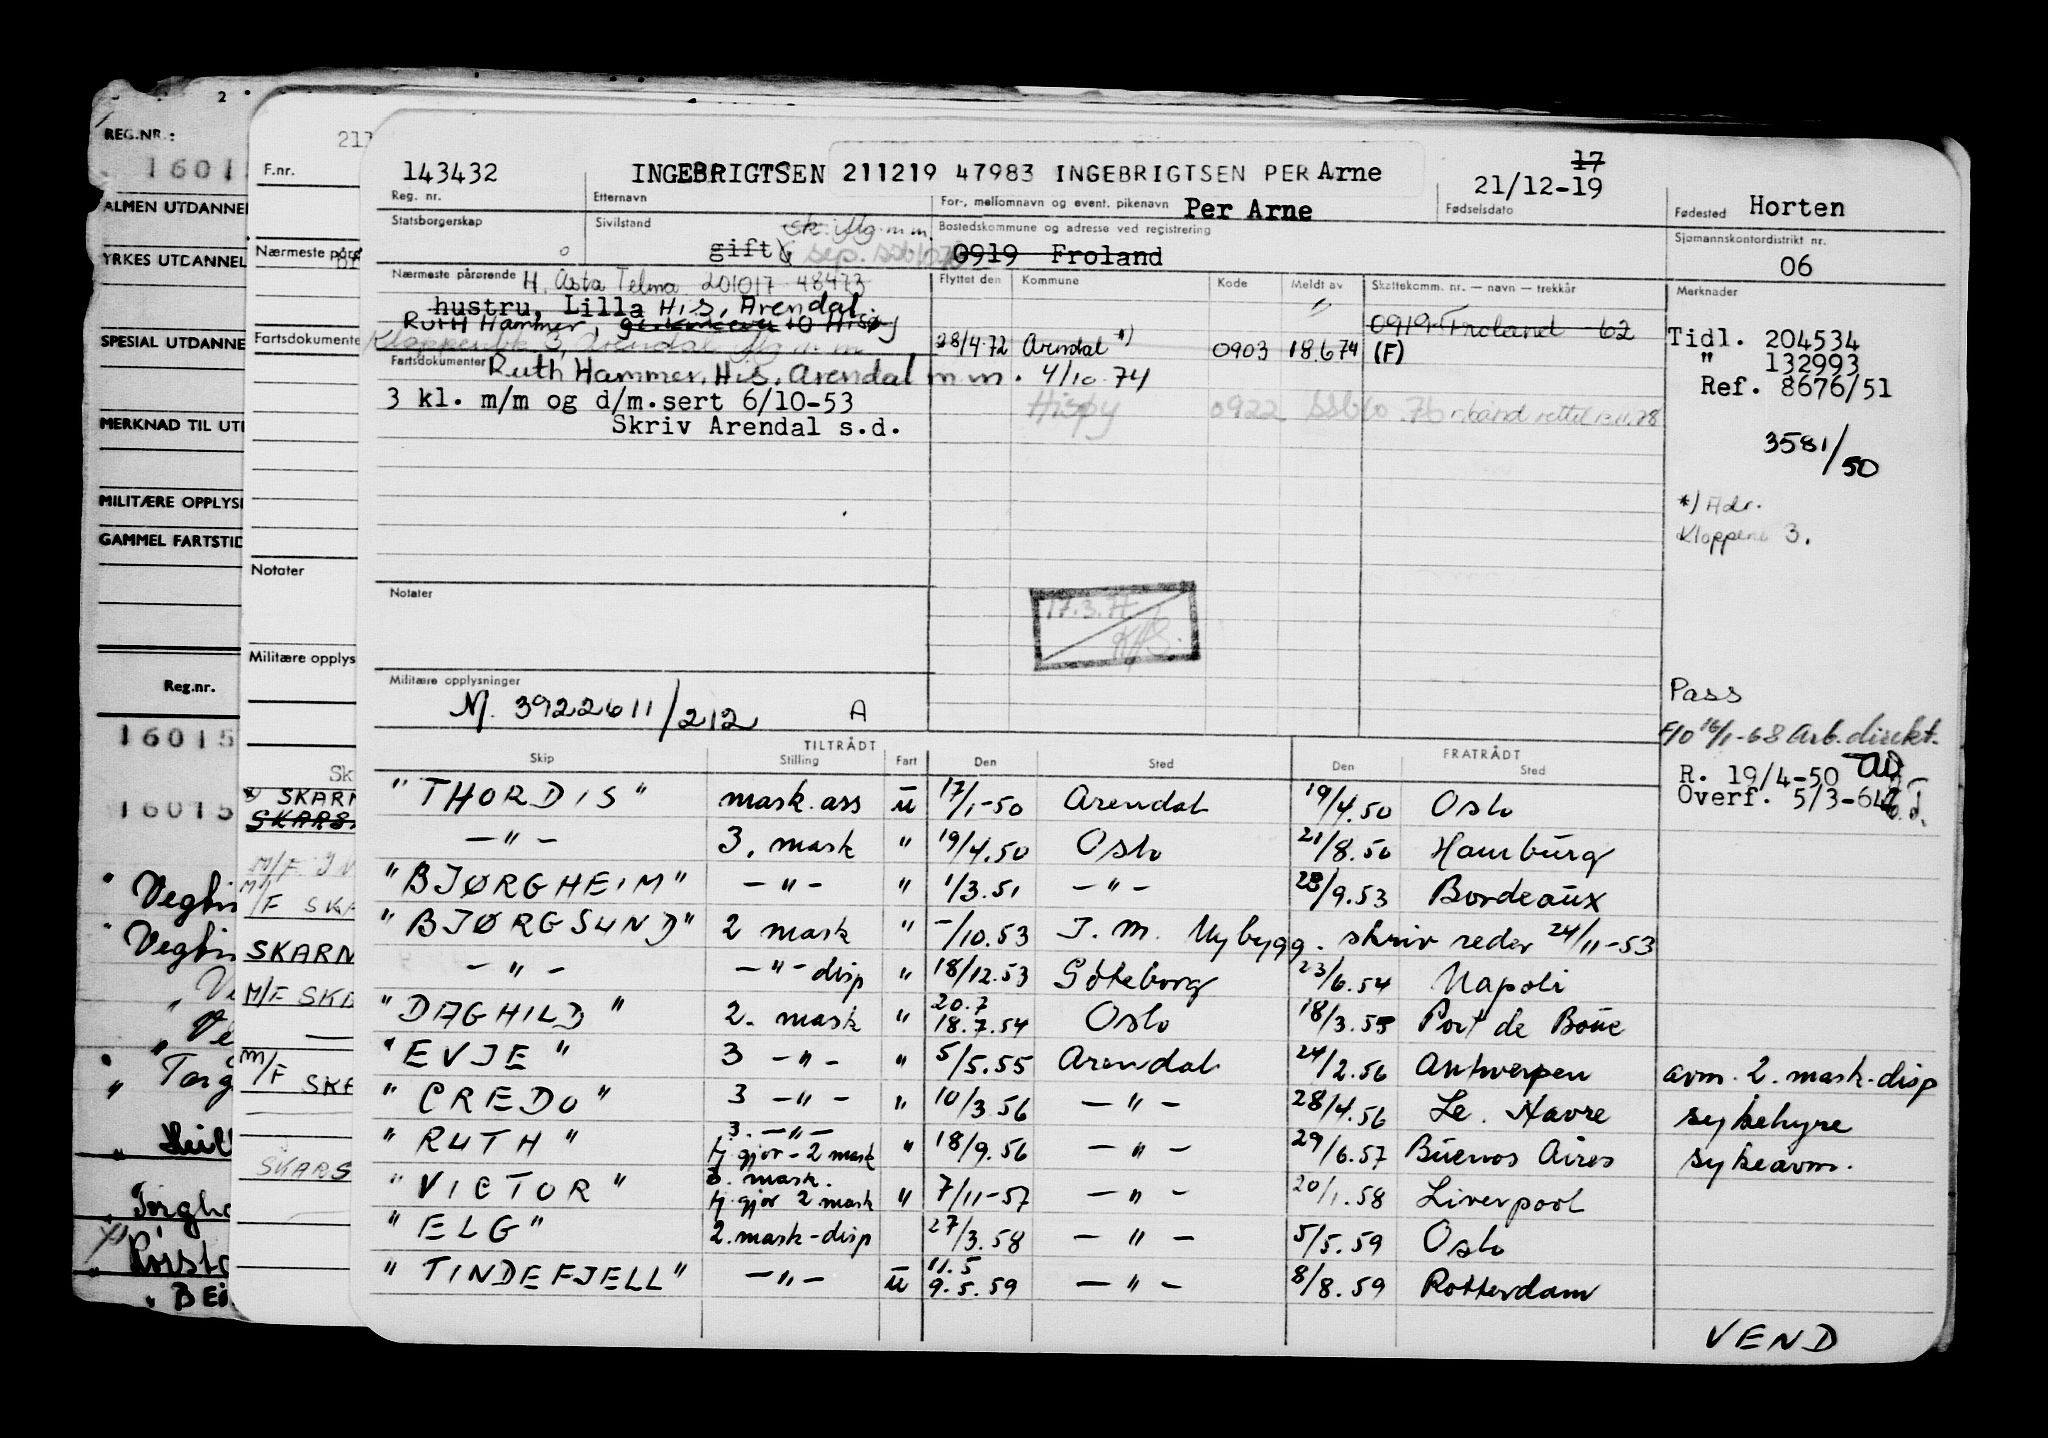 2
REG.NR.:
1601
ALMEN UTDANNEL
YRKES UTDANNEL
SPESIAL UTDANNE
MERKNAD TIL UT
MILITÆRE OPPLYS
GAMMEL FARTSTID
Reg.nr.
16015
16015
" Vegti
" Vegti
"
" Torg
"
"
"
" BE
F.nr.
Nærmeste pår
Fartsdokumente
Notater
Militære opplys
Sk
SKARN
M/F
M/F SKA
SKARN
M/F SKA
M/F SKA
SKARS
143432 INGEBRIGTSEN 211219 47983 INGEBRIGTSEN PER Arne 17 21/12-19
Reg. nr. Etternavn For-, mellomnavn og event. pikenavn Per Arne Fødselsdato Fødested Horten
Statsborgerskap Sivilstand Bostedskommune og adresse ved registrering Sjømannskontordistrikt nr.
gift 0919 Froland 06
Nærmeste pårørende H. Asta Telma 201017 48473 Flyttet den Kommune Kode Meldt av Skattekomm. nr. — navn — trekkår Merknader
hustru, Lilla His, Arendal.
Ruth Hammer, 0919 Froland 62 Tidl. 204534
28/4.72 Arendal *) 0903 18.6.74 (F) " 132993
Fartsdokumenter Ruth Hammer, His, Arendal m m. 4/10.74 Ref. 8676/51
3 kl. m/m og d/m.sert 6/10-53 Hisøy 0922
Skriv Arendal s.d.
3581/50
*) Adr.
Kloppene 3.
Notater
17.3.
Militære opplysninger Pass
M. 3922611/212 A
F/O 16/1-68 Arb.direkt.
R. 19/4-50
Overf. 5/3-64
TILTRÅDT FRATRÅDT
Skip Stilling Fart Den Sted Den Sted
"THORDIS" mask.ass u 17/1-50 Arendal 19/4.50 Oslo
— " — 3. mask " 19/4.50 Oslo 21/8.50 Hamburg
"BJØRGHEIM" — " — " 1/3.51 — " — 23/9.53 Bordeaux
"BJØRGSUND" 2 mask " -/10.53 I. m. Nybygg. skriv reder 24/11-53
— " — — " — disp " 18/12.53 Göteborg 23/6.54 Napoli
"DAGHILD" 2. mask " 20.7 18.7.54 Oslo 18/3.55 Port de Boue
"EVJE" 3 — " — " 5/5.55 Arendal 24/2.56 Antwerpen avm. 2. mask-disp
"CREDO" 3 — " — " 10/3.56 — " — 28/4.56 Le. Havre sykehyre
"RUTH" 3. — " — tj.gjør - 2 mask " 18/9.56 — " — 29/6.57 Buenos Aires sykeavm.
"VICTOR" 3. mask. tj.gjør 2 mask " 7/11-57 — " — 20/1.58 Liverpool
"ELG" 2.mask-disp 27/3.58 — " — 5/5.59 Oslo
"TINDEFJELL" — " — u 11.5 9.5.59 — " — 8/8.59 Rotterdam
VEND